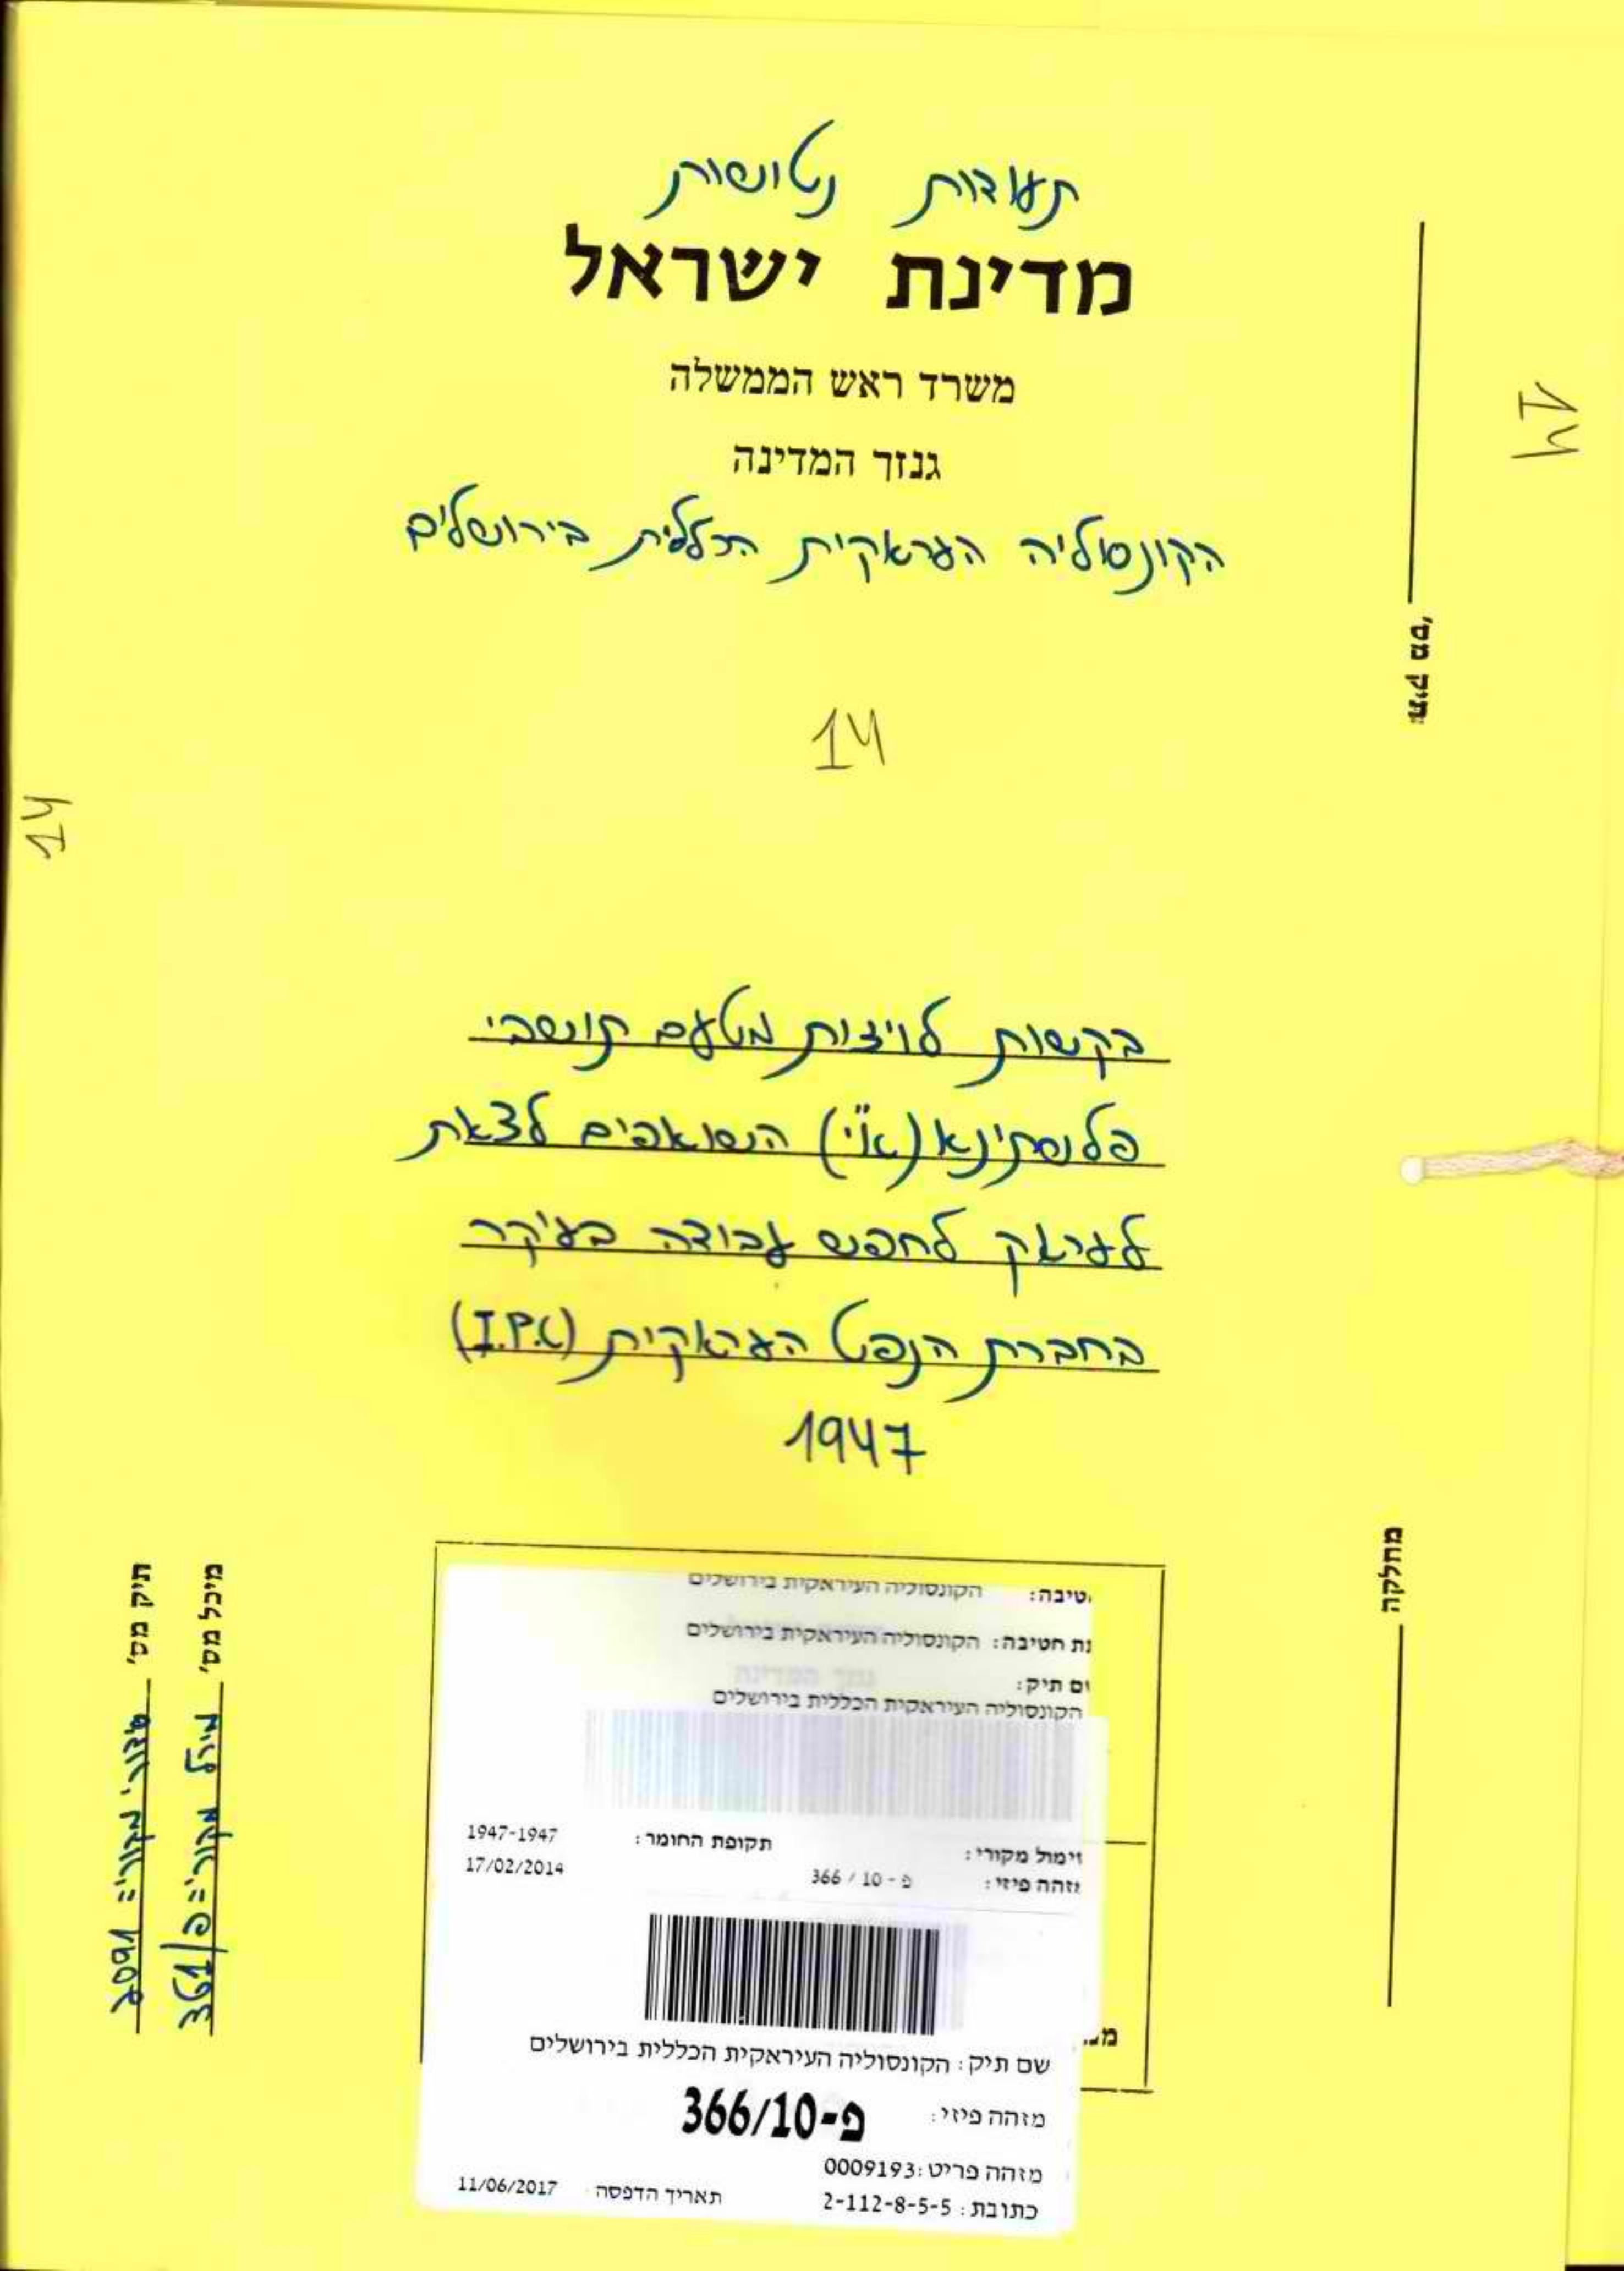 תעודות נטושות
מדינת ישראל
משרד ראש הממשלה
גנזך המדינה
הקונסוליה העראקית הכללית בירושלים
תיק מס'
14
14
14
בקשות לויזות מטעם תושבי
פלשתינא (א"י) השואפים לצאת
לעראק לחפש עבודה בעיקר
בחברת הנפט העראקית (I.P.C)
1947
מחלקה
תיק מס' מקורי: 2091
מיכל מס' מיכל מקורי: פ/361
טיבה: הקונסוליה העיראקית בירושלים
ת חטיבה: הקונסוליה העיראקית בירושלים
ם תיק:
הקונסוליה העיראקית הכללית בירושלים
ימול מקורי:
תקופת החומר: 1947-1947
זהה פיזי: פ - 10 / 366
17/02/2014
שם תיק: הקונסוליה העיראקית הכללית בירושלים
מזהה פיזי: פ-366/10
מזהה פריט: 0009193
כתובת: 2-112-8-5-5
תאריך הדפסה 11/06/2017